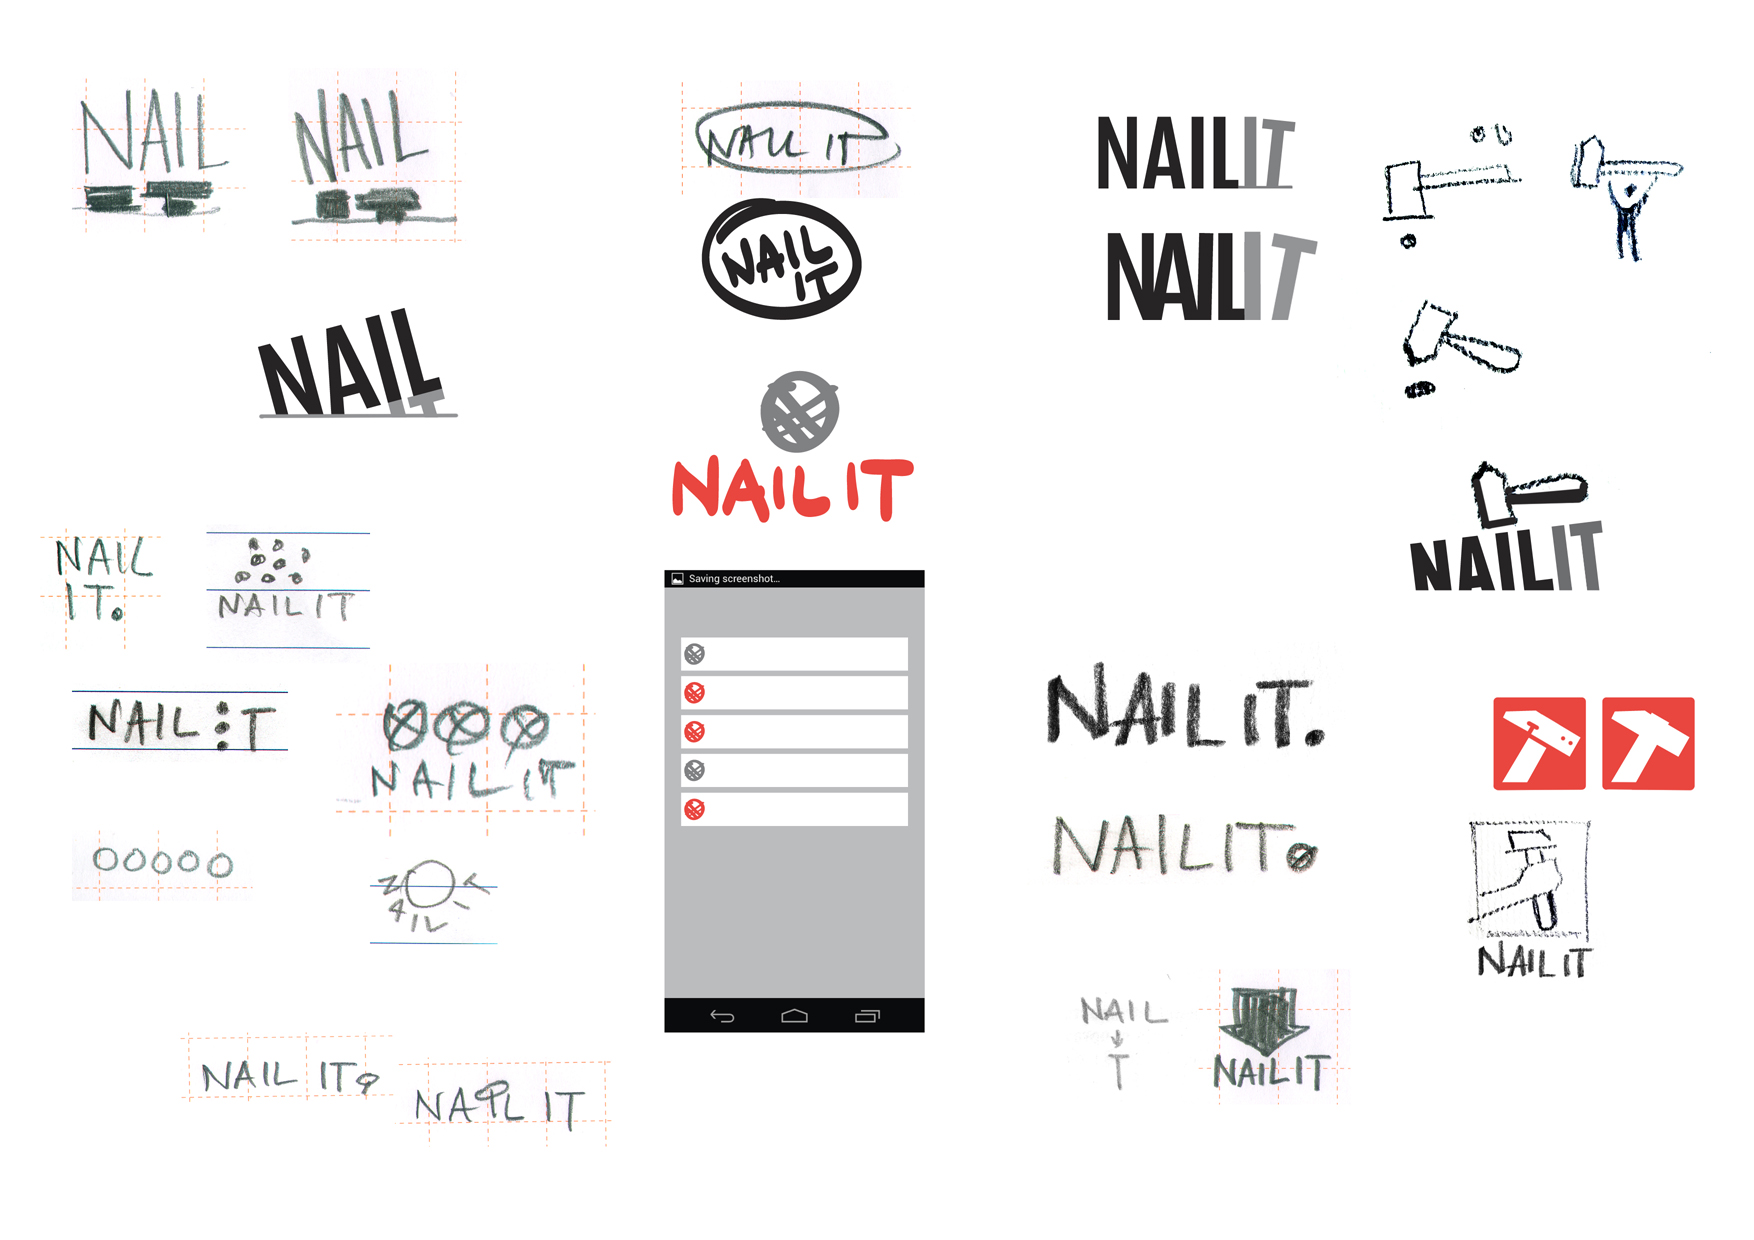 NAIL
NAIL
NAIL IT
NAIL
IT
NAIL
IT
NAIL IT
NAILIT
NAILIT
NAILIT
Saving screenshot...
NAIL
IT.
NAIL IT
NAIL T
NAIL IT
NAIL
NAIL IT
NAIL IT
NAIL IT.
NAIL IT
NAIL IT
NAIL
T
NAIL IT